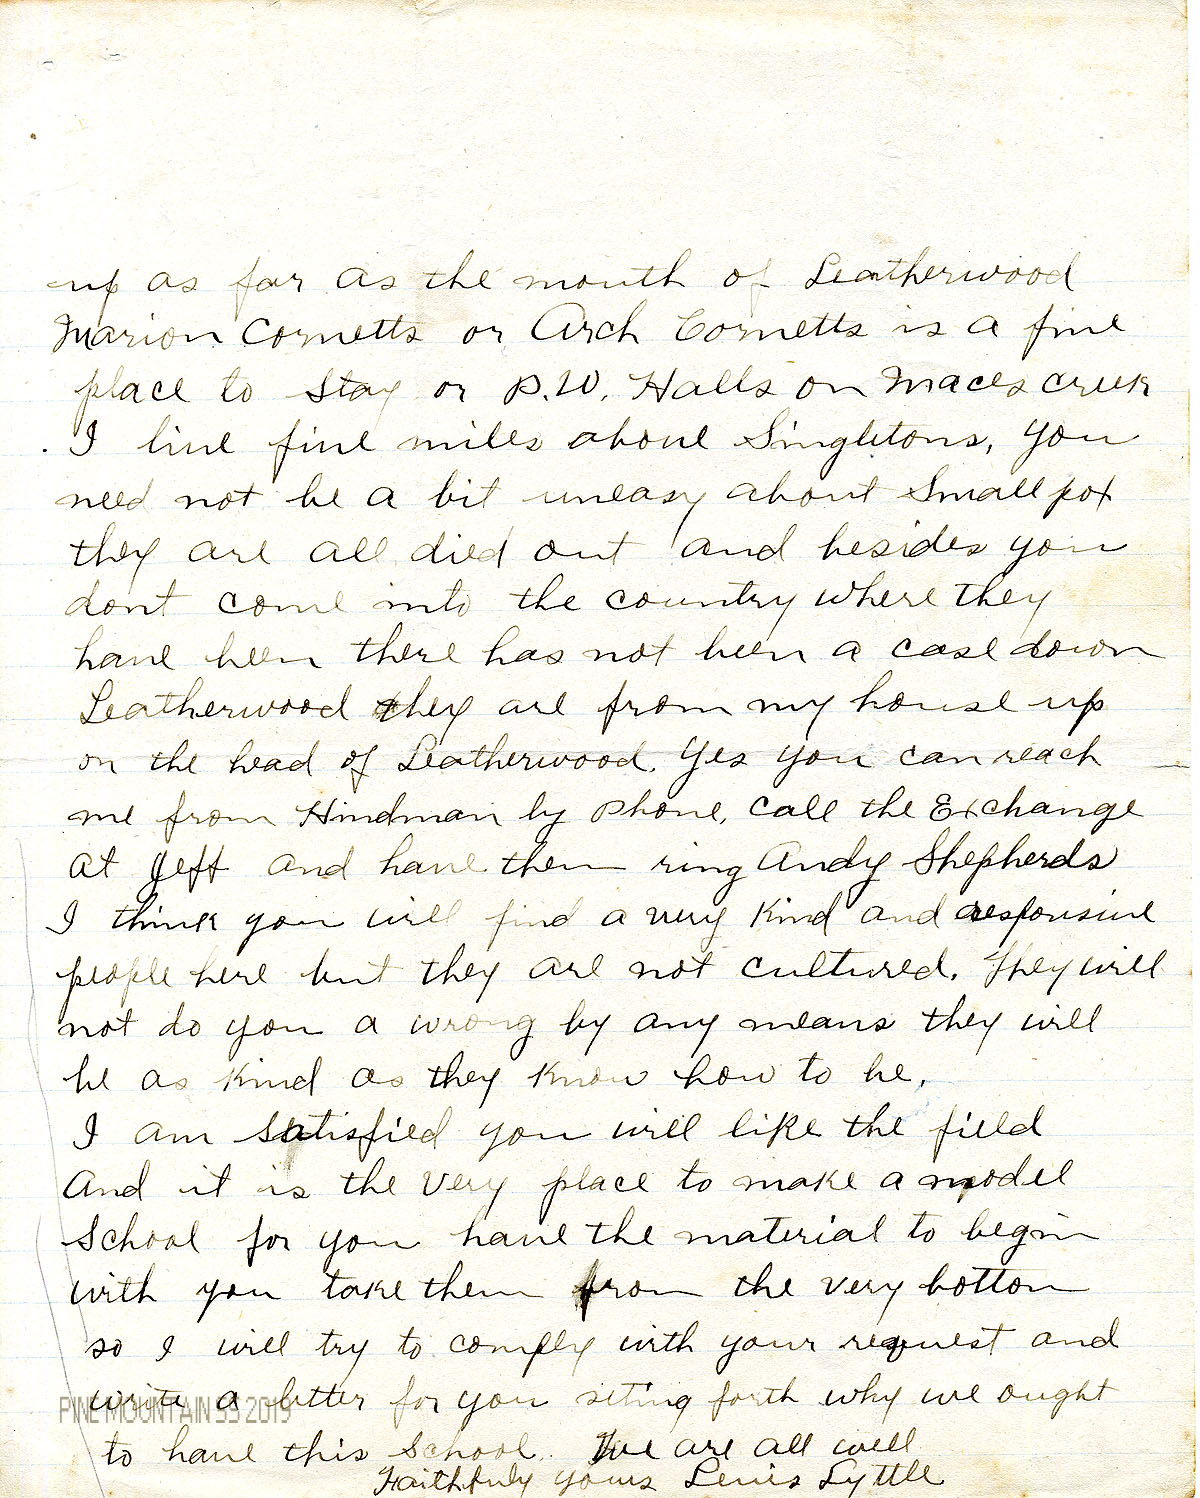 up as far as the mouth of Leatherwood
Marion Cornetts or Arch Cornetts is a fine
place to stay or P.W. Halls on Maces creek
I live five miles above Singletons, you
need not be a bit uneasy about Small pox
they are all died out and besides you
dont come into the country where they
have been there has not been a case down
Leatherwood they are from my house up
on the head of Leatherwood. Yes you can reach
me from Hindman by phone, call the Exchange
at Jeff and have them ring Andy Shepherds
I think you will find a very kind and responsive
people here but they are not cultured. They will
not do you a wrong by any means they will
be as kind as they know how to be,
I am satisfied you will like the field
And it is the very place to make a model
School for you have the material to begin
with you take them from the very bottom
so I will try to comply with your request and
write a letter for you seting forth why we ought
PINE MOUNTAIN SS 2019
to have this School. We are all well
Faithfuly yours Lewis Lyttle